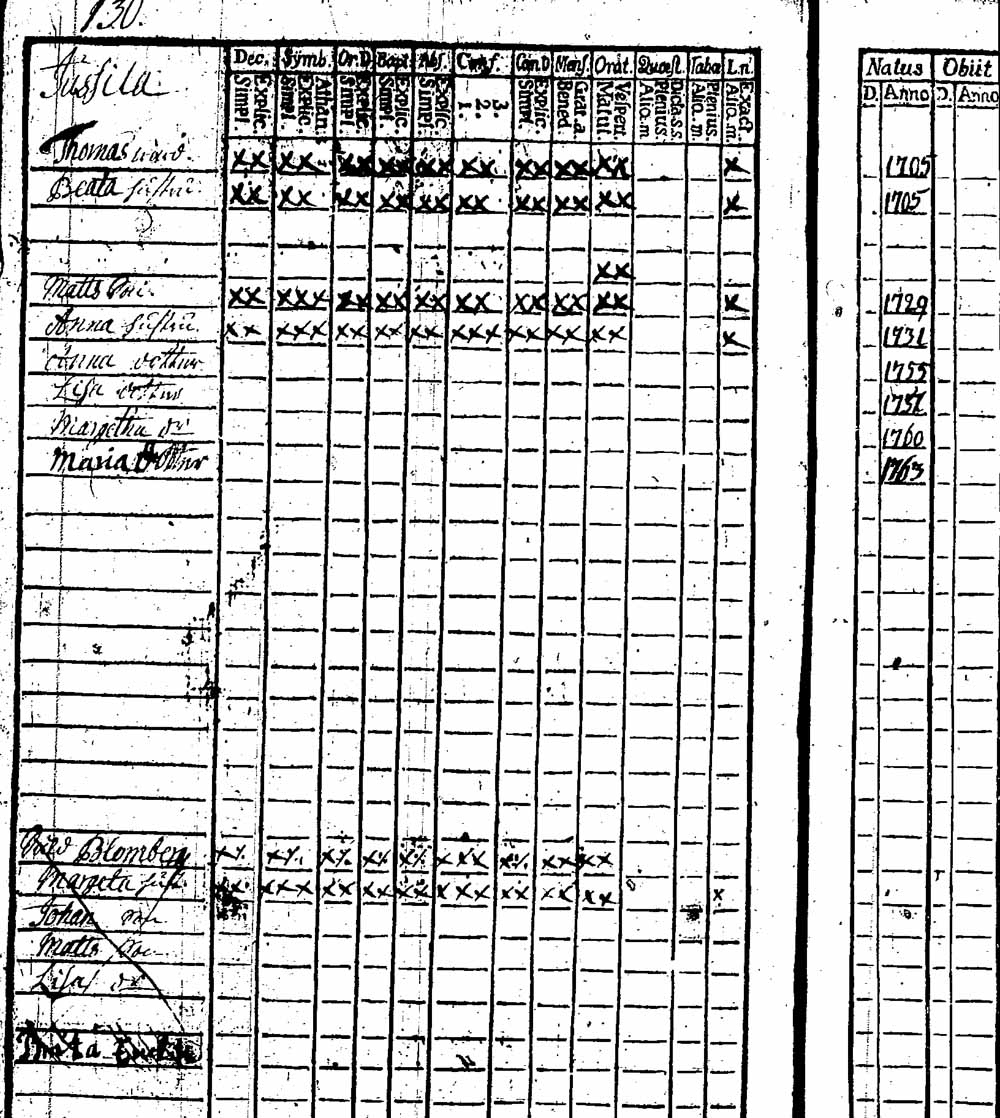 130.
Jussila
Dec. Symb. Or.D. Bapt. Abs. Conf. Cœn.D. Mens. Orat. Quæst. Tabæ L.n.
Explic. Simpl. Athan. Explic. Simpl. Explic. Simpl. Explic. Simpl. Explic. Simpl. 3. 2. 1. Explic. Simpl. Grat. a. Bened. Vespert. Matut. Dicta s.s. Plenius. Aliq. m. Plenius. Aliq. m. Exact. Aliq. m.
Natus Obiit
D. Anno D. Anno
Thomas xx xx xx xx xx xx xx xx xx x 1705
Beata hustru xx xx xx xx xx xx xx xx xx x 1705
xx
Matts xx xxx xx xx xx xx xx xx xx x 1729
Anna hustru xx xxx xx xx xx xxx xx xx xx x 1731
Anna dotter 1755
Lisa dotter 1757
Margetha dr 1760
Maria dotter 1763
Blomberg
Margeta hust. xx xxx xx xx xx xxx xx xx xx x
Johan son
Matts son
Lisa dr